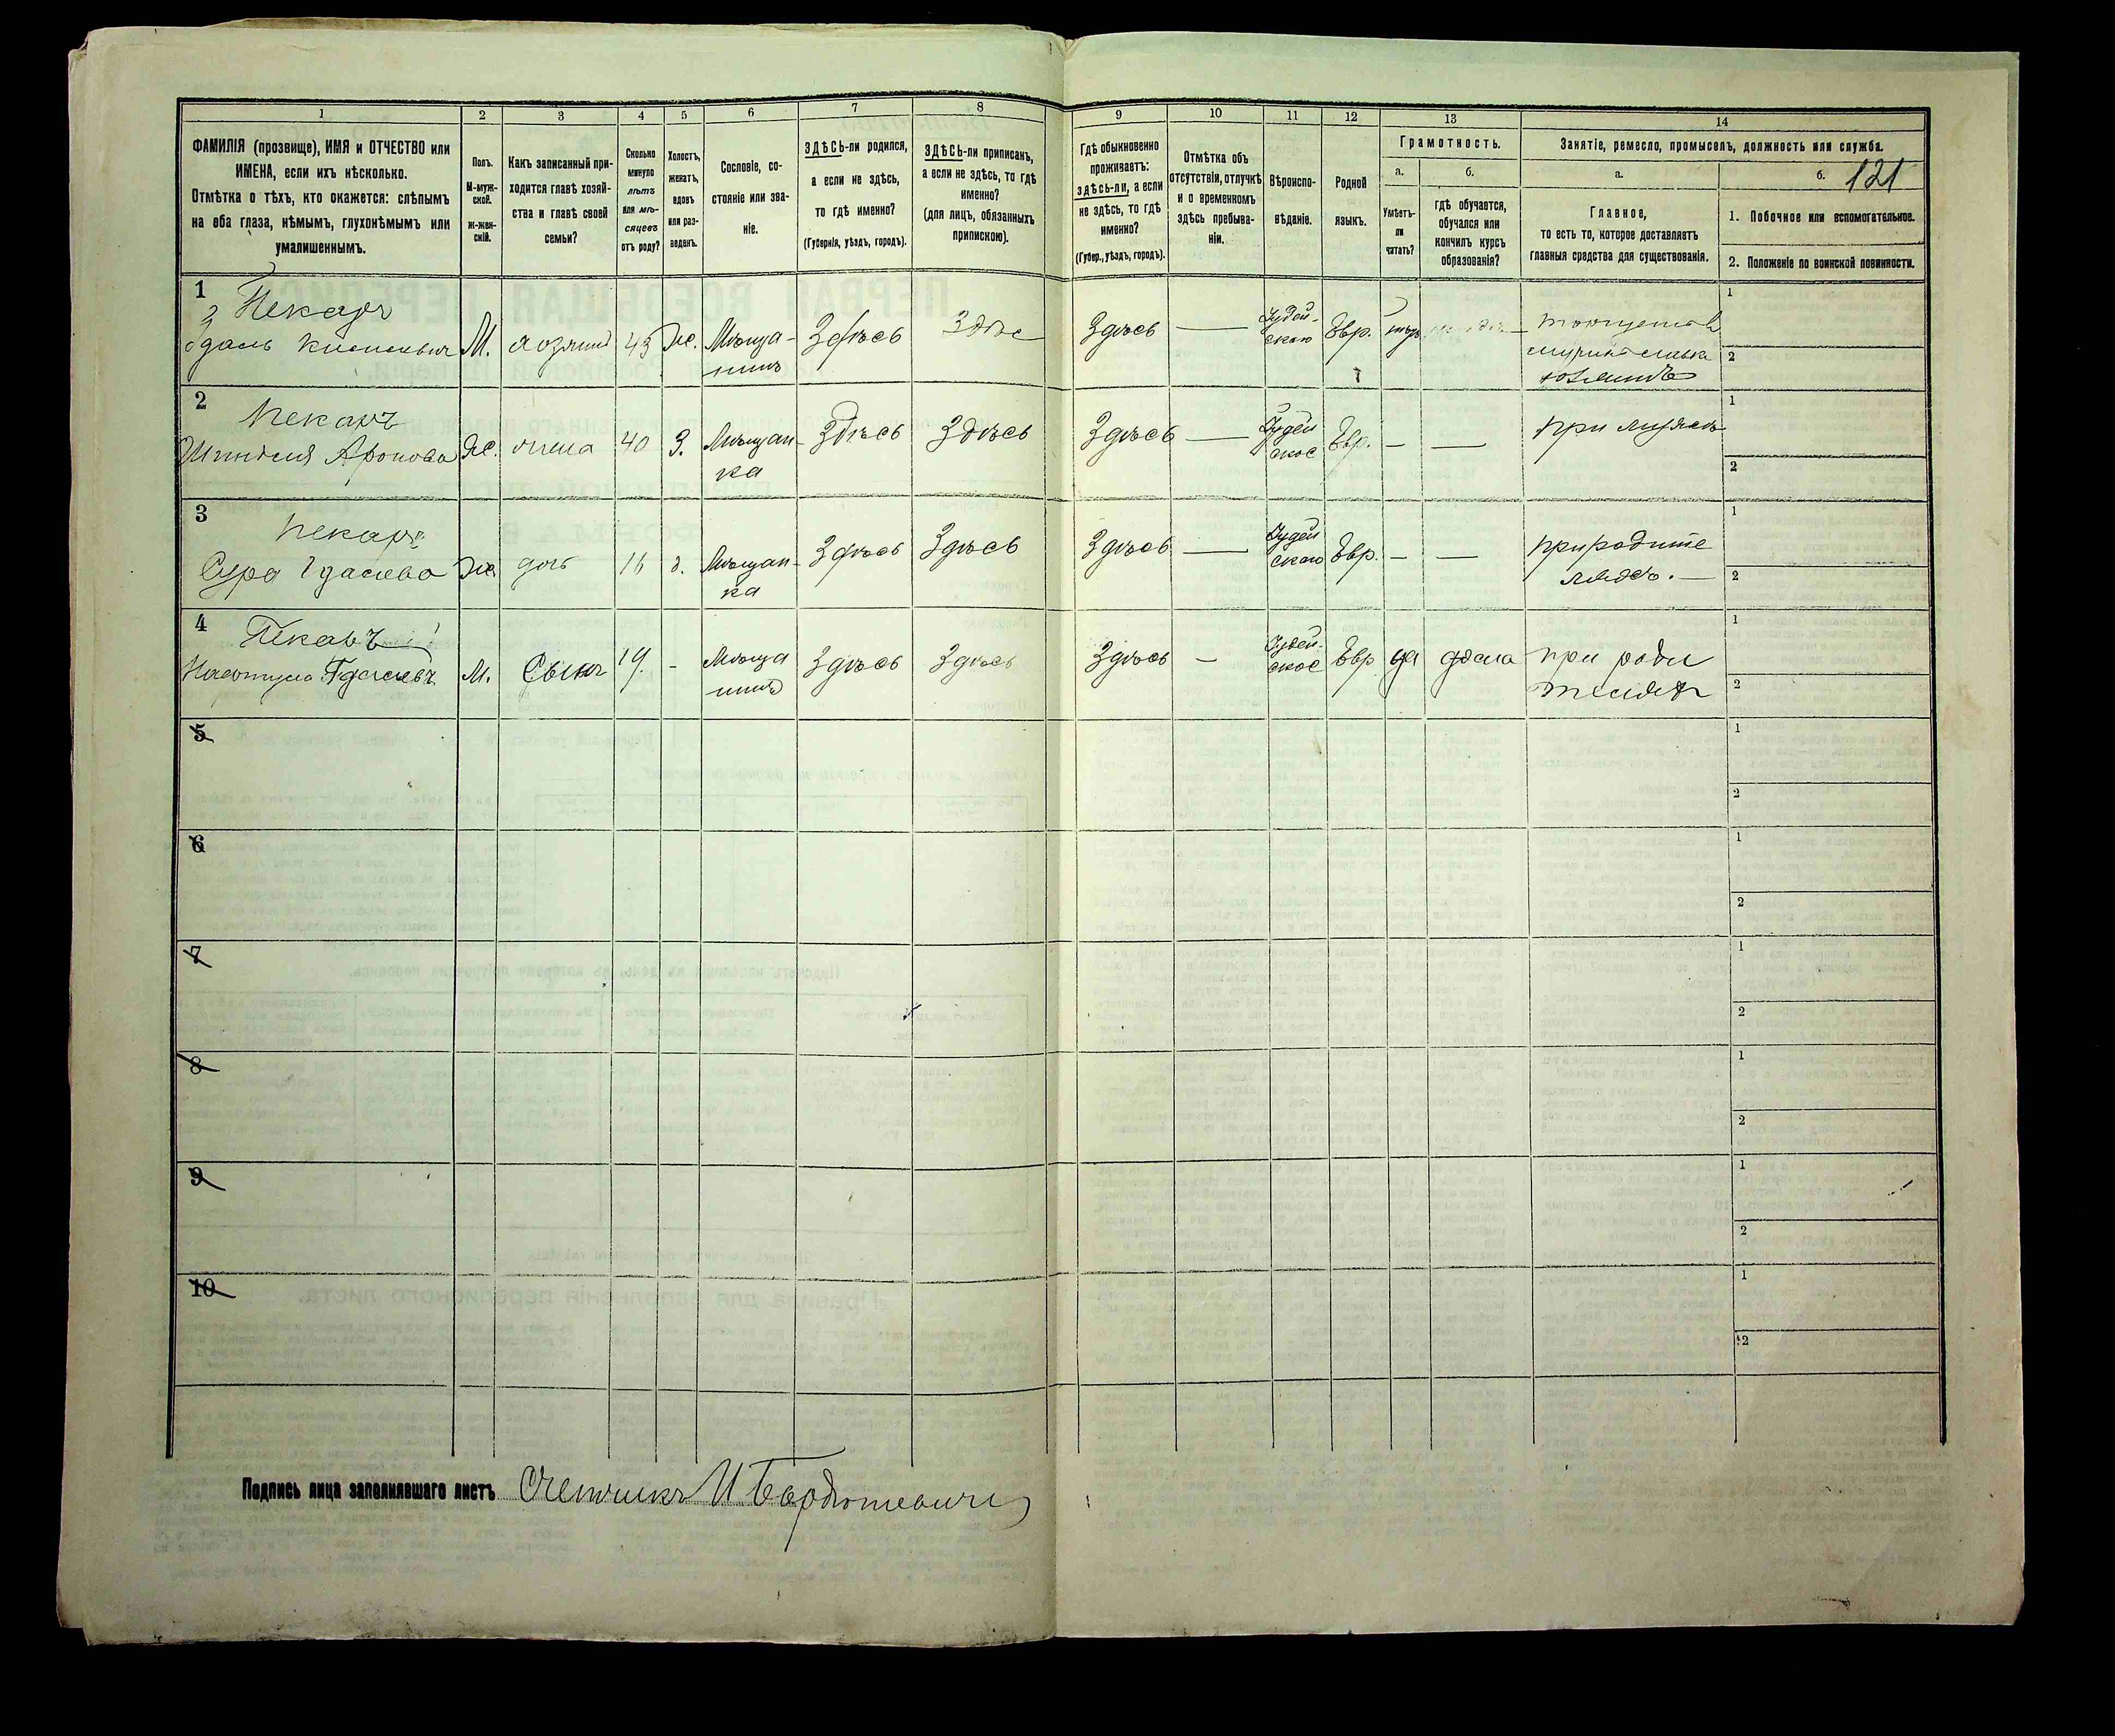 1 2 3 4 5 6 7 8 9 10 11 12 13 14
ФАМИЛІЯ (прозвище), ИМЯ и ОТЧЕСТВО или
ИМЕНА, если ихъ нѣсколько.
Отмѣтка о тѣхъ, кто окажется: слѣпымъ
на оба глаза, нѣмымъ, глухонѣмымъ или
умалишеннымъ.
Полъ.
М-муж-
ской.
ж-жен-
скій.
Какъ записанный при-
ходится главѣ хозяй-
ства и главѣ своей
семьи?
Сколько
минуло
лѣтъ
или мѣ-
сяцевъ
отъ роду?
Холостъ,
женатъ,
вдовъ
или раз-
веденъ.
Сословіе, со-
стояніе или зва-
ніе.
ЗДѢСЬ-ли родился,
а если не здѣсь,
то гдѣ именно?
(Губернія, уѣздъ, городъ).
ЗДѢСЬ-ли приписанъ,
а если не здѣсь, то гдѣ
именно?
(для лицъ, обязанныхъ
припискою).
Гдѣ обыкновенно
проживаетъ:
здѣсь-ли, а если
не здѣсь, то гдѣ
именно?
(Губер., уѣздъ, городъ).
Отмѣтка объ
отсутствіи, отлучкѣ
и о временномъ
здѣсь пребыва-
ніи.
Вѣроиспо-
вѣданіе.
Родной
языкъ.
Грамотность.
а.
Умѣетъ-
ли
читать?
б.
гдѣ обучается,
обучался или
кончилъ курсъ
образованія?
Занятіе, ремесло, промыселъ, должность или служба.
а.
Главное,
то есть то, которое доставляетъ
главныя средства для существованія.
б. 121
1. Побочное или вспомогательное.
2. Положеніе по воинской повинности.
1
Пекарь
М. 43 Же. Мѣща- Здѣсь Здѣсь Здѣсь — Іудей- Евр.
нинъ ское
1
2
2
Пекарь
Шиндля Аронова Же. жена 40 З. Мѣщан- Здѣсь Здѣсь Здѣсь — Іудей Евр. — —
ка ское
1
2
3
Пекарь
Сура Же дочь д. Мѣщан- Здѣсь Здѣсь Здѣсь — Іудей Евр. — — при родите
ка ское ляхъ. —
1
2
4
Пекарь
М. Сынъ 19. - Мѣща Здѣсь Здѣсь Здѣсь — Іудей- Евр да дома при роди
нинъ ское теляхъ
1
2
5
1
2
6
1
2
7
1
2
8
1
2
9
1
2
10
1
2
Подпись лица заполнявшаго листъ Счетчикъ И